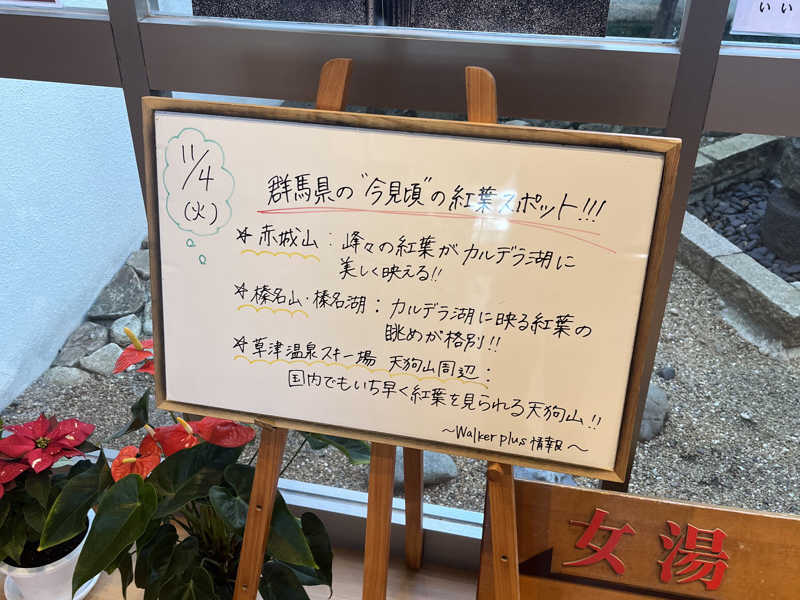 11/4
(火)
群馬県の"今見頃"の紅葉スポット!!!
☆赤城山：峰々の紅葉がカルデラ湖に
美しく映える!!
☆榛名山・榛名湖：カルデラ湖に映る紅葉の
眺めが格別!!
☆草津温泉スキー場 天狗山周辺：
国内でもいち早く紅葉を見られる天狗山!!
～Walker plus 情報～
女湯